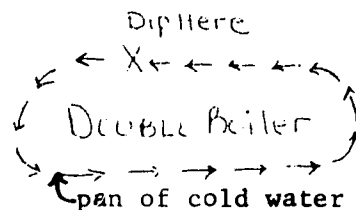 Dip Here
X
Double Boiler
pan of cold water